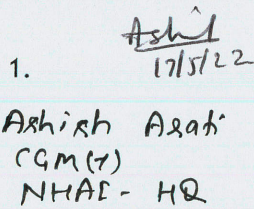 Ashil
17/5/22
1.
Ashish Asati
CGM(T)
NHAI - HQ